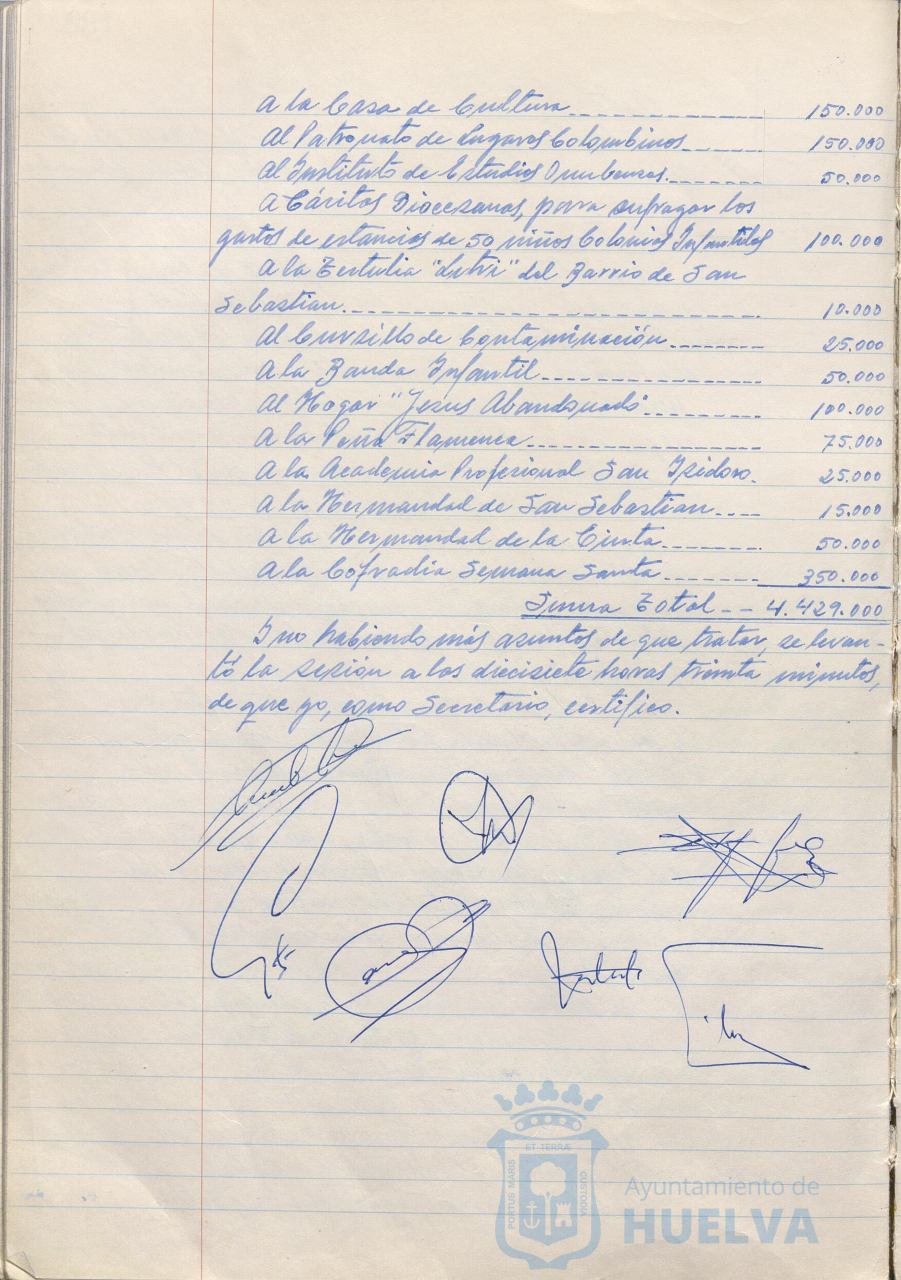 A la Casa de Cultura 150.000
Al Patronato de Lugares Colombinos 150.000
Al Instituto de Estudios Onubenses 50.000
A Cáritas Diocesanas, para sufragar los
gastos de estancias de 50 niños Colonias Infantiles 100.000
A la Tertulia "Litri" del Barrio de San
Sebastian 10.000
Al Cursillo de Contaminación 25.000
A la Banda Infantil 50.000
Al Hogar "Jesus Abandonado" 100.000
A la Peña Flamenca 75.000
A la Academia Profesional San Isidoro. 25.000
A la Hermandad de San Sebastian 15.000
A la Hermandad de la Cinta 50.000
A la Cofradia Semana Santa 350.000
Suma Total -- 4.429.000
Y no habiendo más asuntos de que tratar, se levan-
tó la sesión a las diecisiete horas treinta minutos,
de que yo, como Secretario, certifico.
ET TERRÆ
PORTUS MARIS
CUSTODIA
Ayuntamiento de
HUELVA